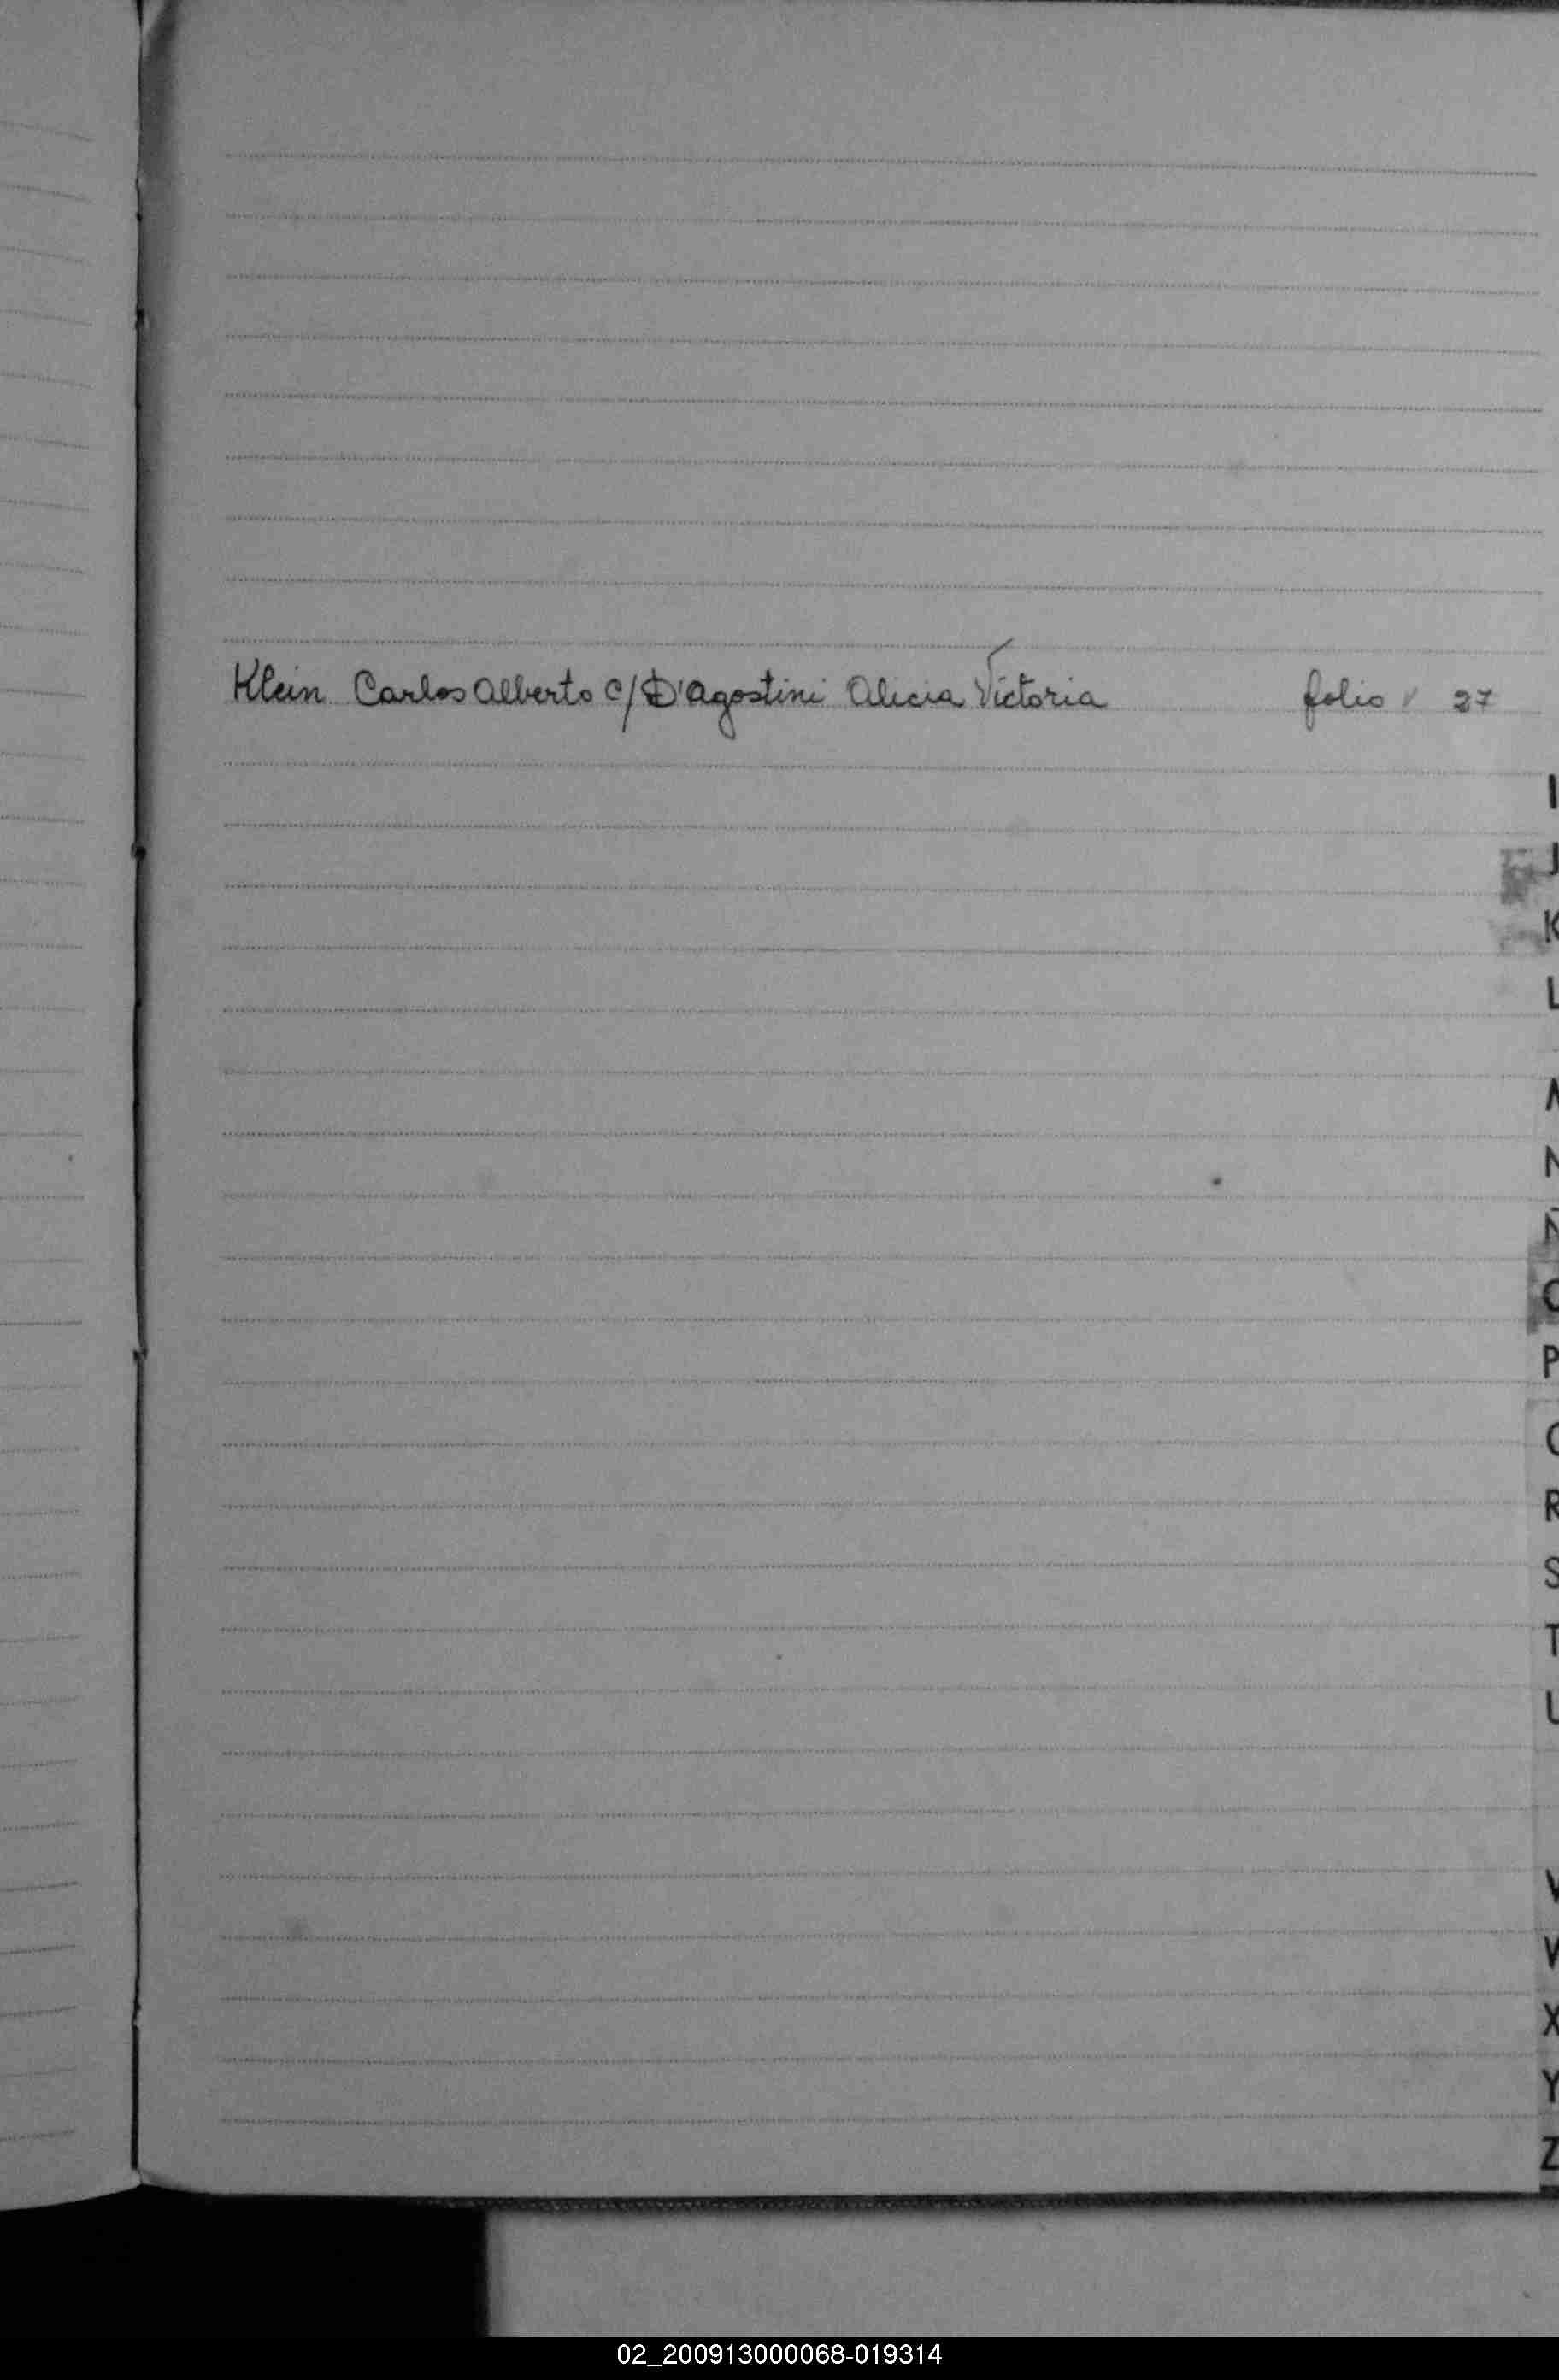 Klein Carlos Alberto c/ D'Agostini Alicia Victoria folio 27
I
J
K
L
M
N
Ñ
O
P
Q
R
S
T
U
V
W
X
Y
Z
02_200913000068-019314